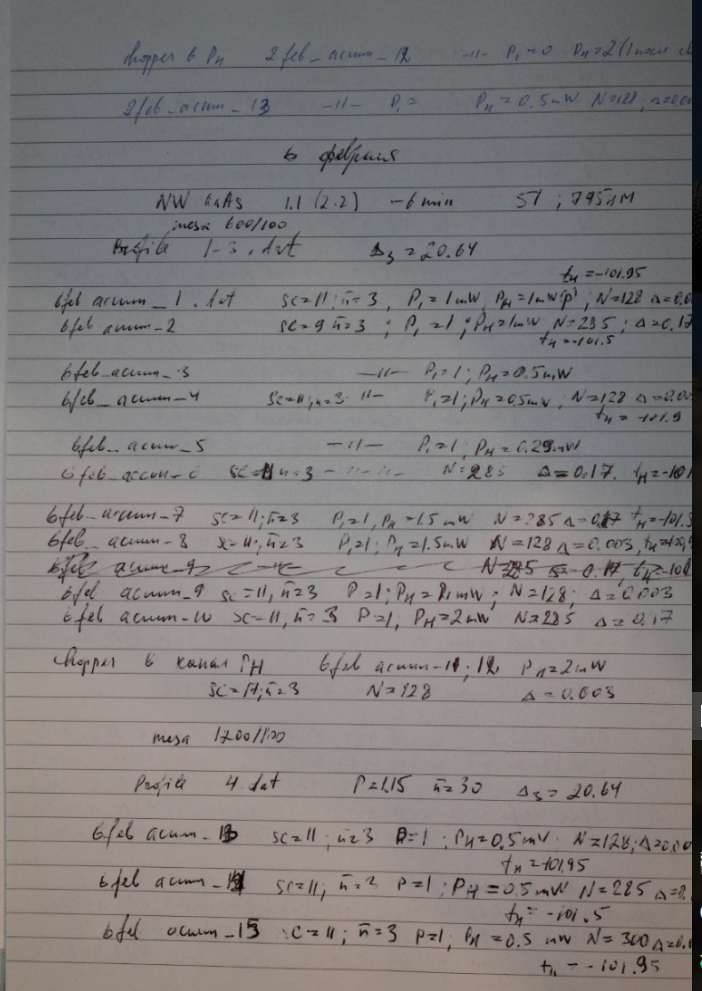 chopper в Pн 2feb_acum_12 -"- P₁=0 Pн=2(1
2feb_acum_13 -"- P₁= Pн=0.5mW N=128, Δ=0.00
6 февраля
NW GaAs 1.1 (2.2) -6 min 51 ; 795nM
mesa 600/100
Profile 1-3.dat Δ₃=20.64
tн=-101.95
6feb acum_1.dat sc=11; n̄=3, P₁=1mW, Pн=1mW(p), N=128 Δ=0.0
6feb acum_2 sc=9 n̄=3 ; P₁=1 ; Pн=1mW N=285 ; Δ=0.17
tн=-101.5
6feb_acum_3 -"- P₁=1; Pн=0.5mW
6feb_acum_4 sc=11; n=3 -"- P₁=1; Pн=0.5mW ; N=128 Δ=0.00
tн=-101.9
6feb_acum_5 -"- P₁=1; Pн=0.29mW
6feb_accum_6 sc=11 n=3 -"- -"- N=285 Δ=0.17. tн=-101
6feb_acum_7 sc=11; n̄=3 P₁=1, Pн=1.5mW N=285 Δ=0.17 tн=-101.5
6feb_acum_8 x=11; n̄=3 P₁=1; Pн=1.5mW N=128 Δ=0.003, tн=
6feb acum_9 N=285 Δ=0.17, tн=-101
6feb acum_9 sc=11, n̄=3 P=1; Pн=2mW; N=128; Δ=0.003
6feb acum_10 x=11, n̄=3 P=1, Pн=2mW N=285 Δ=0.17
chopper в канал Pн 6feb acum_11; 12 Pн=2mW
sc=11; n̄=3 N=128 Δ=0.003
mesa 1200/1100
Profile 4.dat P=1.15 n̄=30 Δ₃=20.64
6feb acum_13 sc=11; n̄=3 P=1; Pн=0.5mW. N=128; Δ=0.00
tн=-101.95
6feb acum_14 sc=11; n̄=3 P=1; Pн=0.5mW N=285 Δ=0.
tн=-101.5
6feb acum_15 sc=11; n̄=3 P=1, Pн=0.5 mW N=300 Δ=0.
tн=-101.95